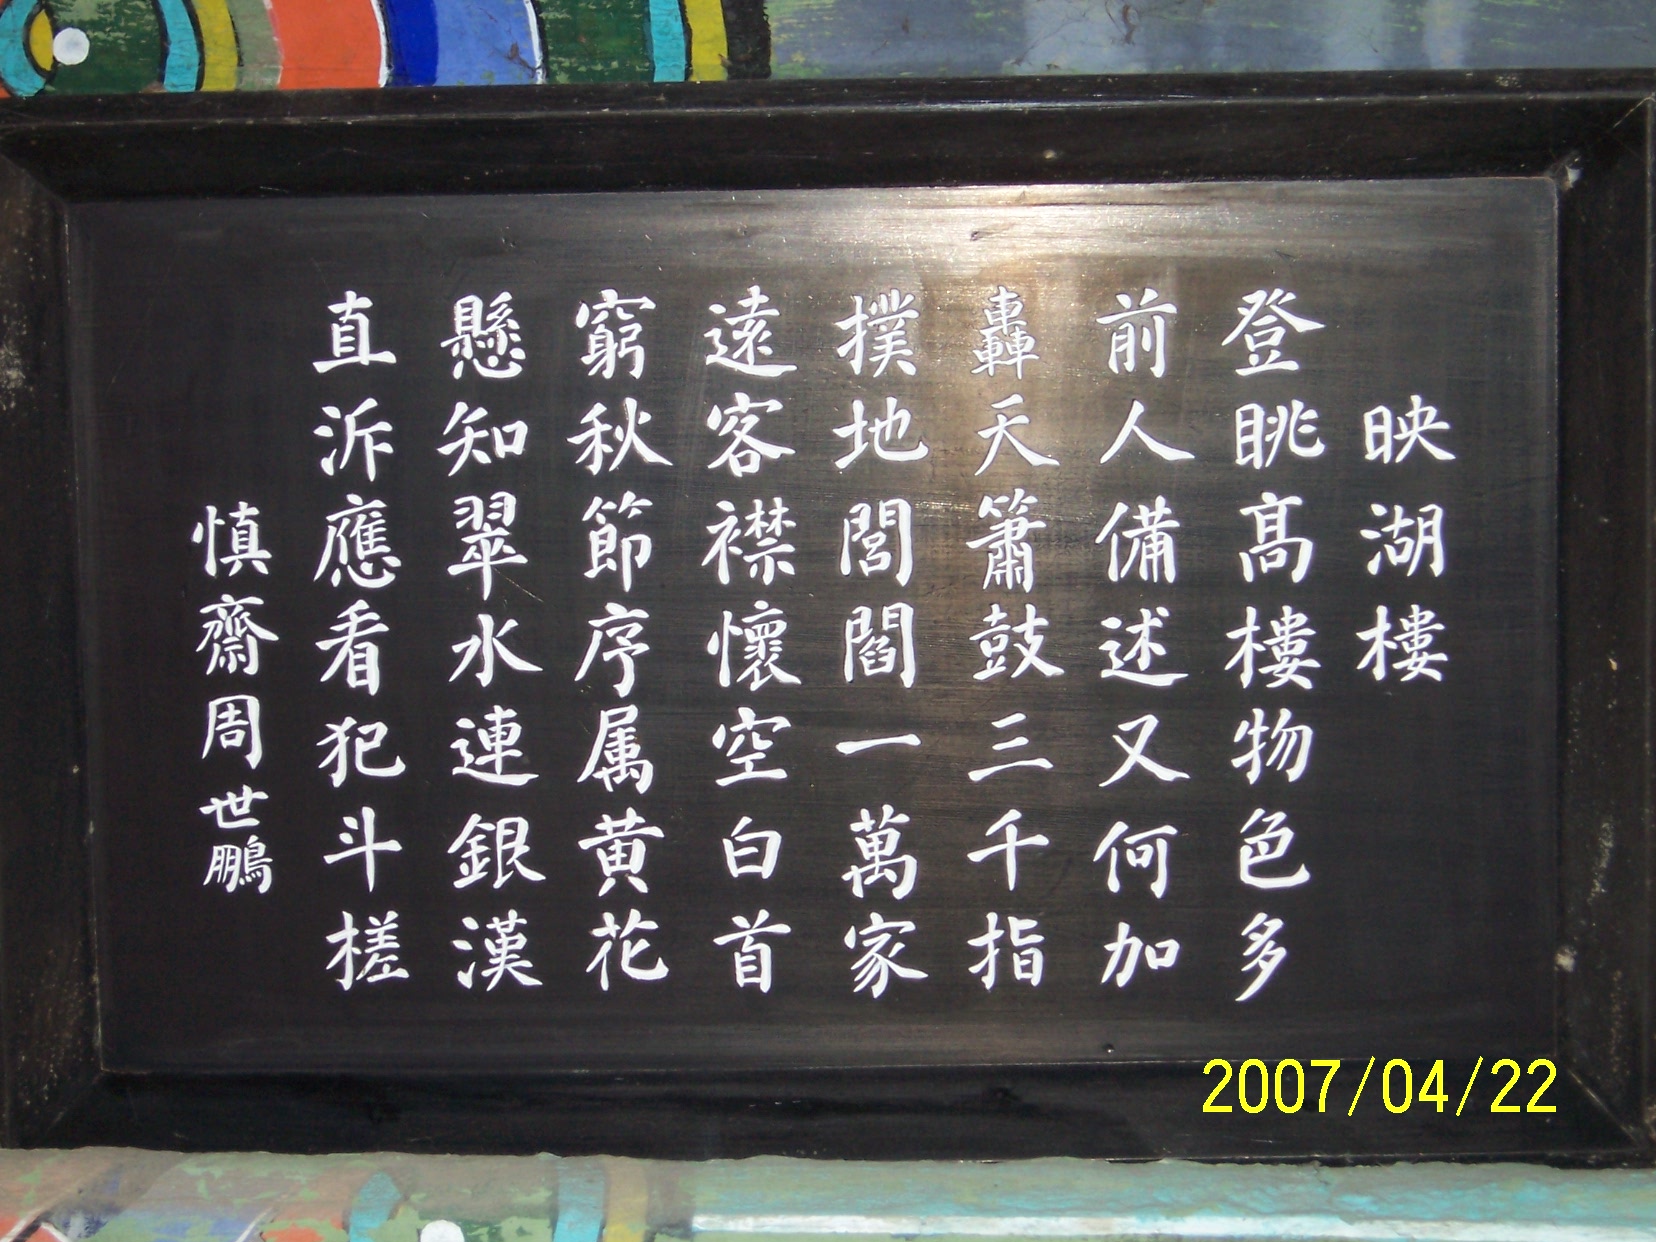 映湖樓
登眺髙樓物色多
前人備述又何加
轟天簫鼓三千指
撲地閭閻一萬家
遠客襟懷空白首
窮秋節序属黄花
懸知翠水連銀漢
直泝應看犯斗槎
慎齋周世鵬
2007/04/22